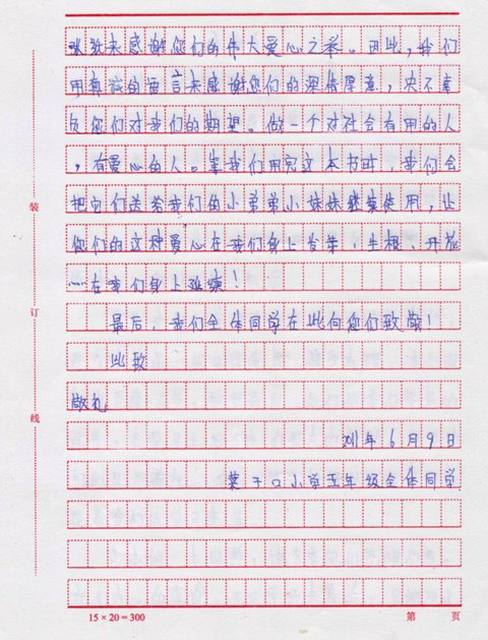 来感谢您们的伟大爱心之举。因此，我们
用真诚的语言来感谢您们的深情厚意，决不辜
负您们对我们的期望。做一个对社会有用的人
，有爱心的人。当我们用完这本书时，我们会
把它们送给我们的小弟弟小妹妹继续使用，让
您们的这种爱心在我们身上发芽、生根、开花
心在我们身上延续！
最后，我们全体同学在此向您们致敬！
此致
敬礼
2011年6月9日
子口小学五年级全体同学
装
订
线
15×20=300
第 页